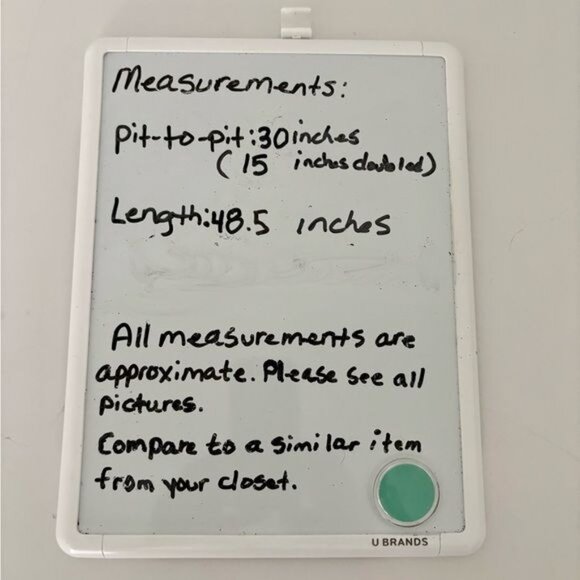 Measurements:
Pit-to-pit:30 inches
(15 inches doubled)
Length:48.5 inches
All measurements are
approximate. Please see all
pictures.
Compare to a similar item
from your closet.
U BRANDS